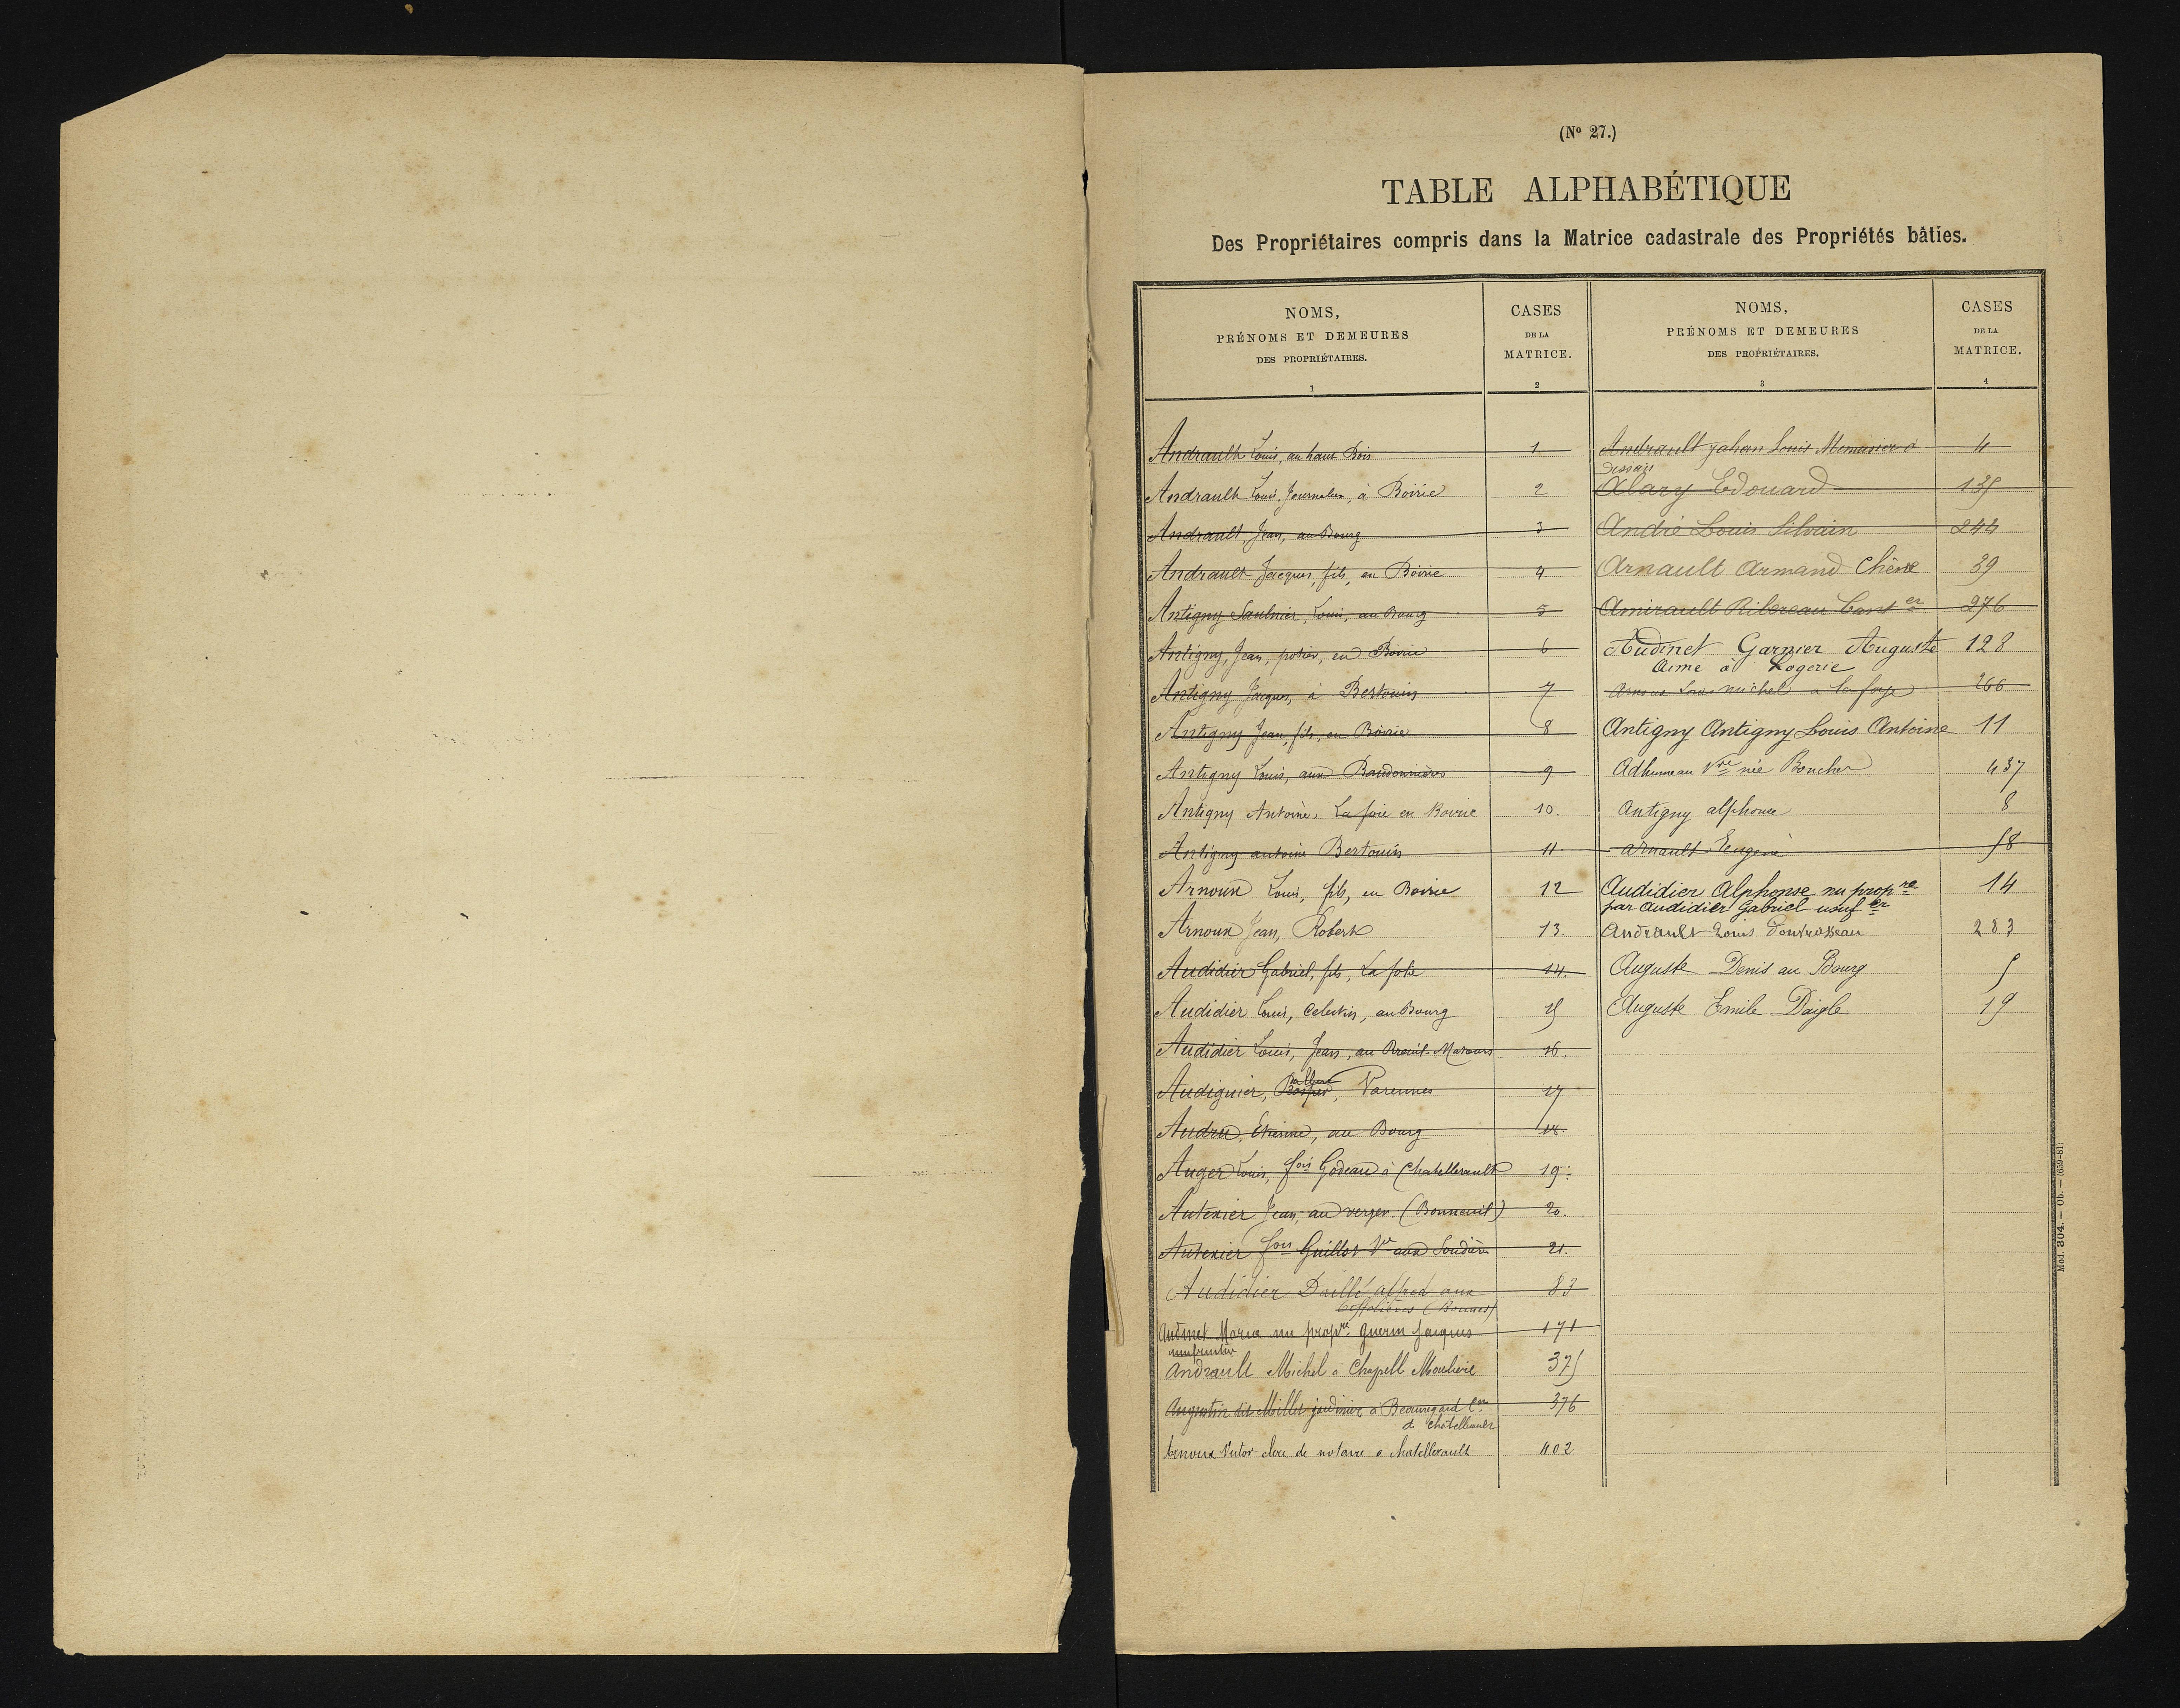 (Nº 27.)
TABLE ALPHABÉTIQUE
Des Propriétaires compris dans la Matrice cadastrale des Propriétés bâties.
NOMS,
PRÉNOMS ET DEMEURES
DES PROPRIÉTAIRES.
1
CASES
DE LA
MATRICE.
2
Andrault Louis, au haut Bois 1
Andrault Louis, Journalier, à Boirie 2
Andrault, Jean, au Bourg 3
Andrault Jacques, fils, en Boirie 4
Antigny Saulnier, Louis, au Bourg 5
Antigny, Jean, potier, en Boirie 6
Antigny Jacques, à Bertouin 7
Antigny Jean, fils, en Boirie 8
Antigny Louis, aux Baudonnières 9
Antigny Antoine, en Boirie 10.
Antigny antoine Bertouin 11
Arnoux Louis, fils, en Boirie 12
Arnoux Jean, Robert 13.
Audidier Gabriel, fils, La folie 14.
Audidier Louis, Celestin, au Bourg 15
Audidier Louis, Jean, au Breuil-Marours 16.
Audiguier, Prosper, Varennes 17
Audru, Etienne, au Bourg 18.
Auger Louis, fois Godeau à Chatellerault 19.
Autexier Jean, au verger. (Bonneuil) 20.
Autexier fois Guillot Vve aux 21.
Audidier Daillé alfred aux 83
(Bonnes)
Audinet Maria nu propre Guerin Jacques 171
usufruitier
Andrault Michel à Chapell Moulière 375
Augustin dit Millet jardinier à Beauregard Cne 376
de Chatellerault
Arnoux Victor clerc de notaire à Chatellerault 402
NOMS,
PRÉNOMS ET DEMEURES
DES PROPRIÉTAIRES.
3
CASES
DE LA
MATRICE.
4
Andrault Jahan Louis Menuisier à 4
Dissais
Alary Edouard 135
André Louis Silvain 244
Arnault Armand Chêne 39
Amirault Ribereau Cant er 276
Audinet Garnier Auguste 128
Aimé à Logerie
Arnoux Louis Michel à la forge 266
Antigny Antigny Louis Antoine 11
Adhumeau Vve née Boucher 437
Antigny alphonse 8
Arnault Eugene 58
Audidier Alphonse nu propre 14
par Audidier Gabriel usuf er
Andrault Louis 283
Auguste Denis au Bourg 5
Auguste Emile Daigle 19
Mod. 304. — Ob. — (659-81)